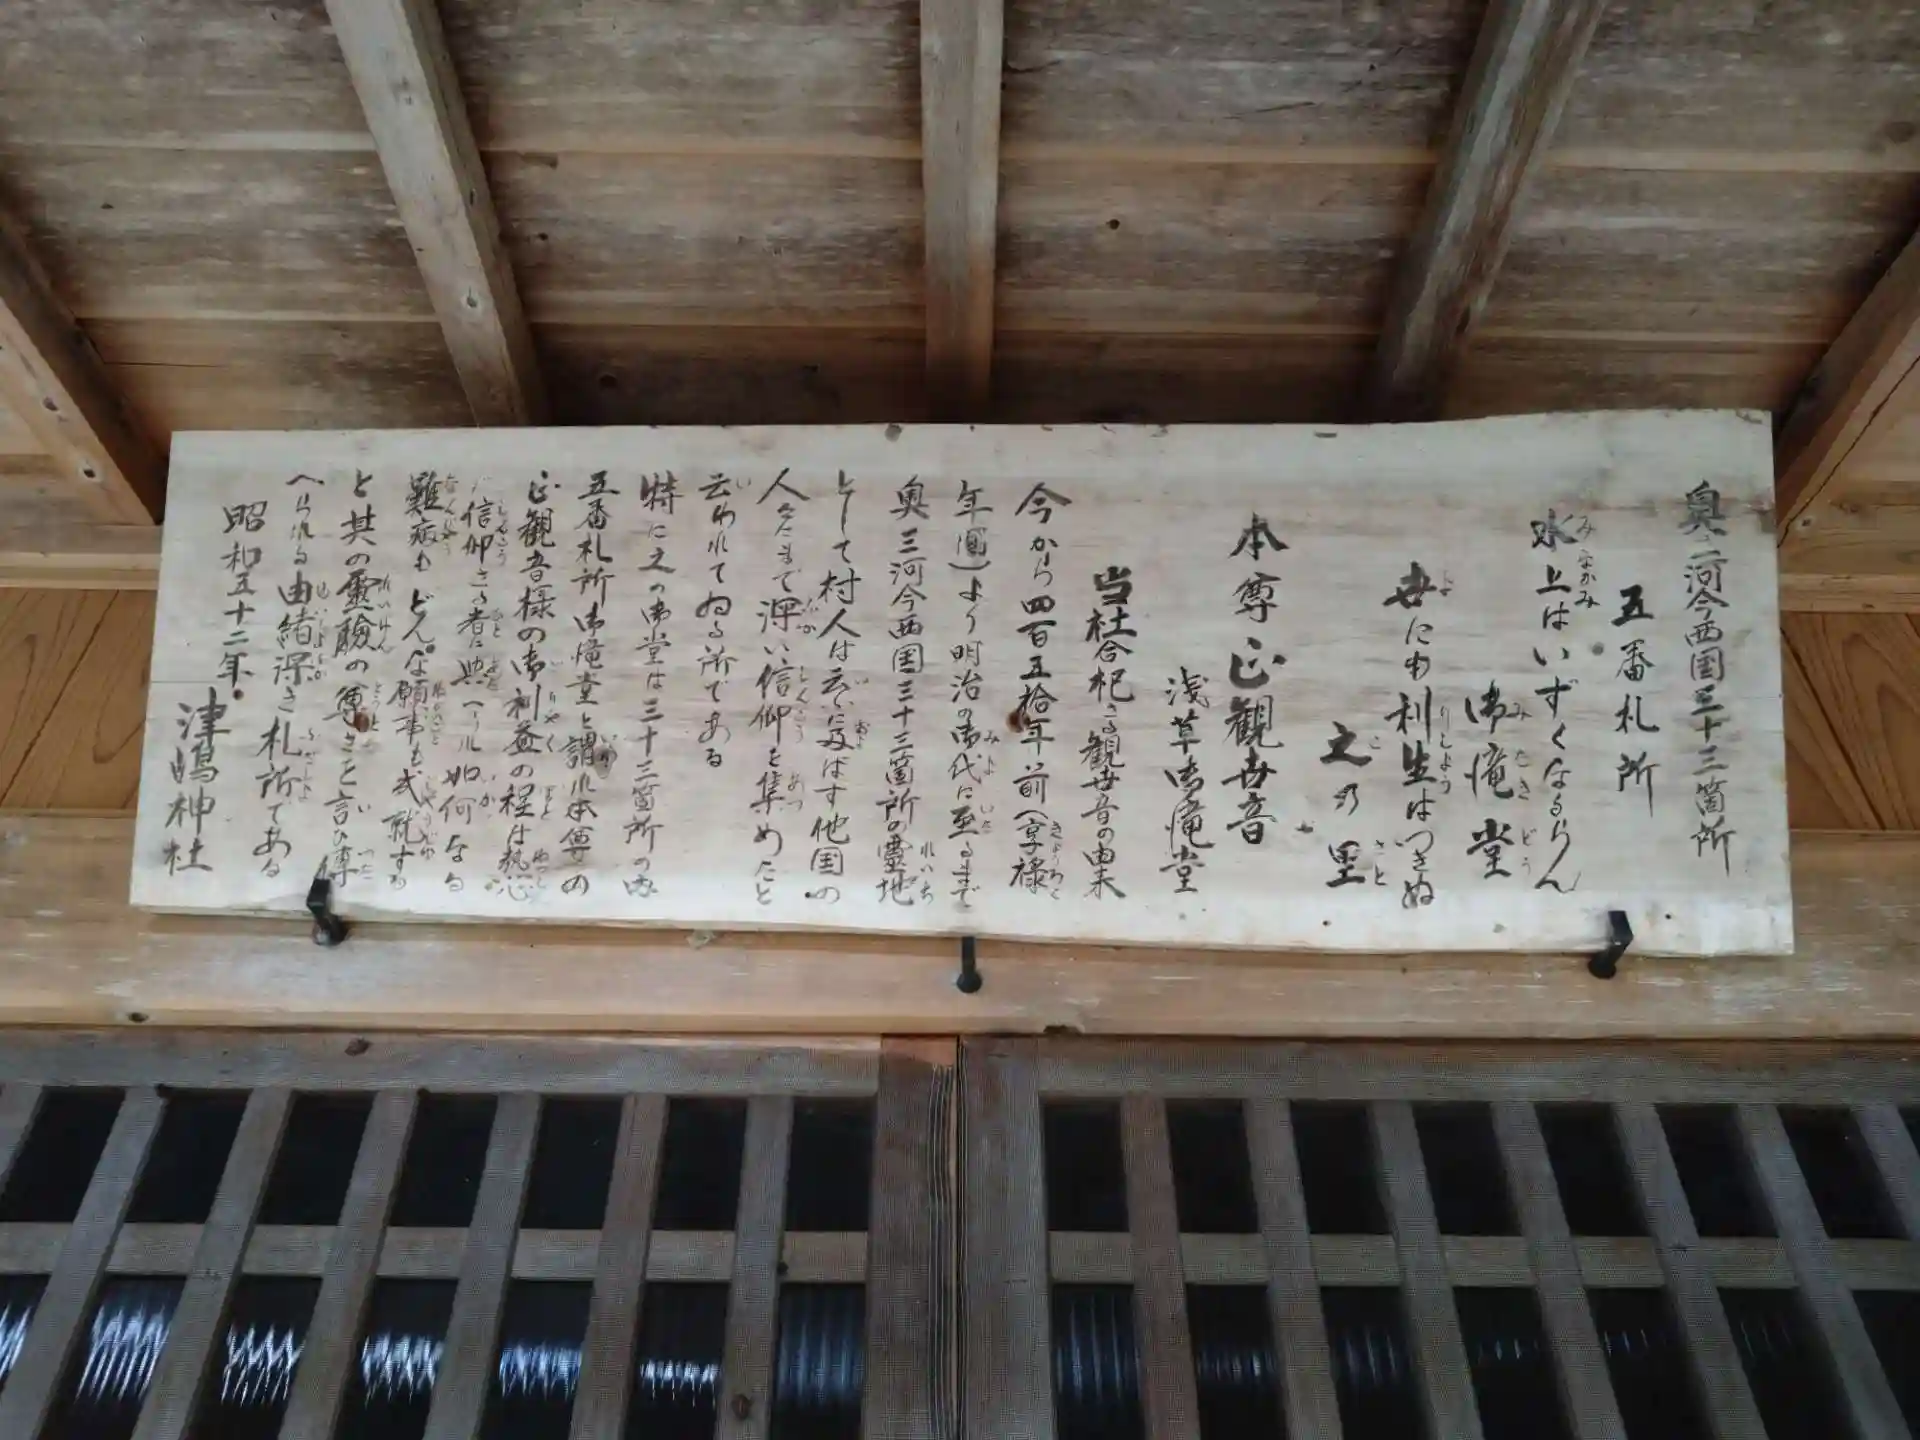 奥三河今西国三十三箇所
五番札所
水上はいずくなるらん
御滝堂
世にも利生はつきぬ
之の里
本尊 正観世音
浅草御滝堂
当社合祀さる観世音の由来
今から四百五拾年前(享禄
年間)より明治の御代に至るまで
奥三河今西国三十三箇所の霊地
として村人は云ふに及ばず他国の
人々にまで深い信仰を集めたと
云われてゐる所である
特に之の御堂は三十三箇所の内
五番札所御滝堂と謂れ本尊の
正観音様の御利益の程は熱心
に信仰さる者に與へられ如何なる
難病もどんな願事も成就する
と其の霊験の尊きを言ひ傳
へられる由緒深き札所である
昭和五十二年
津嶋神社